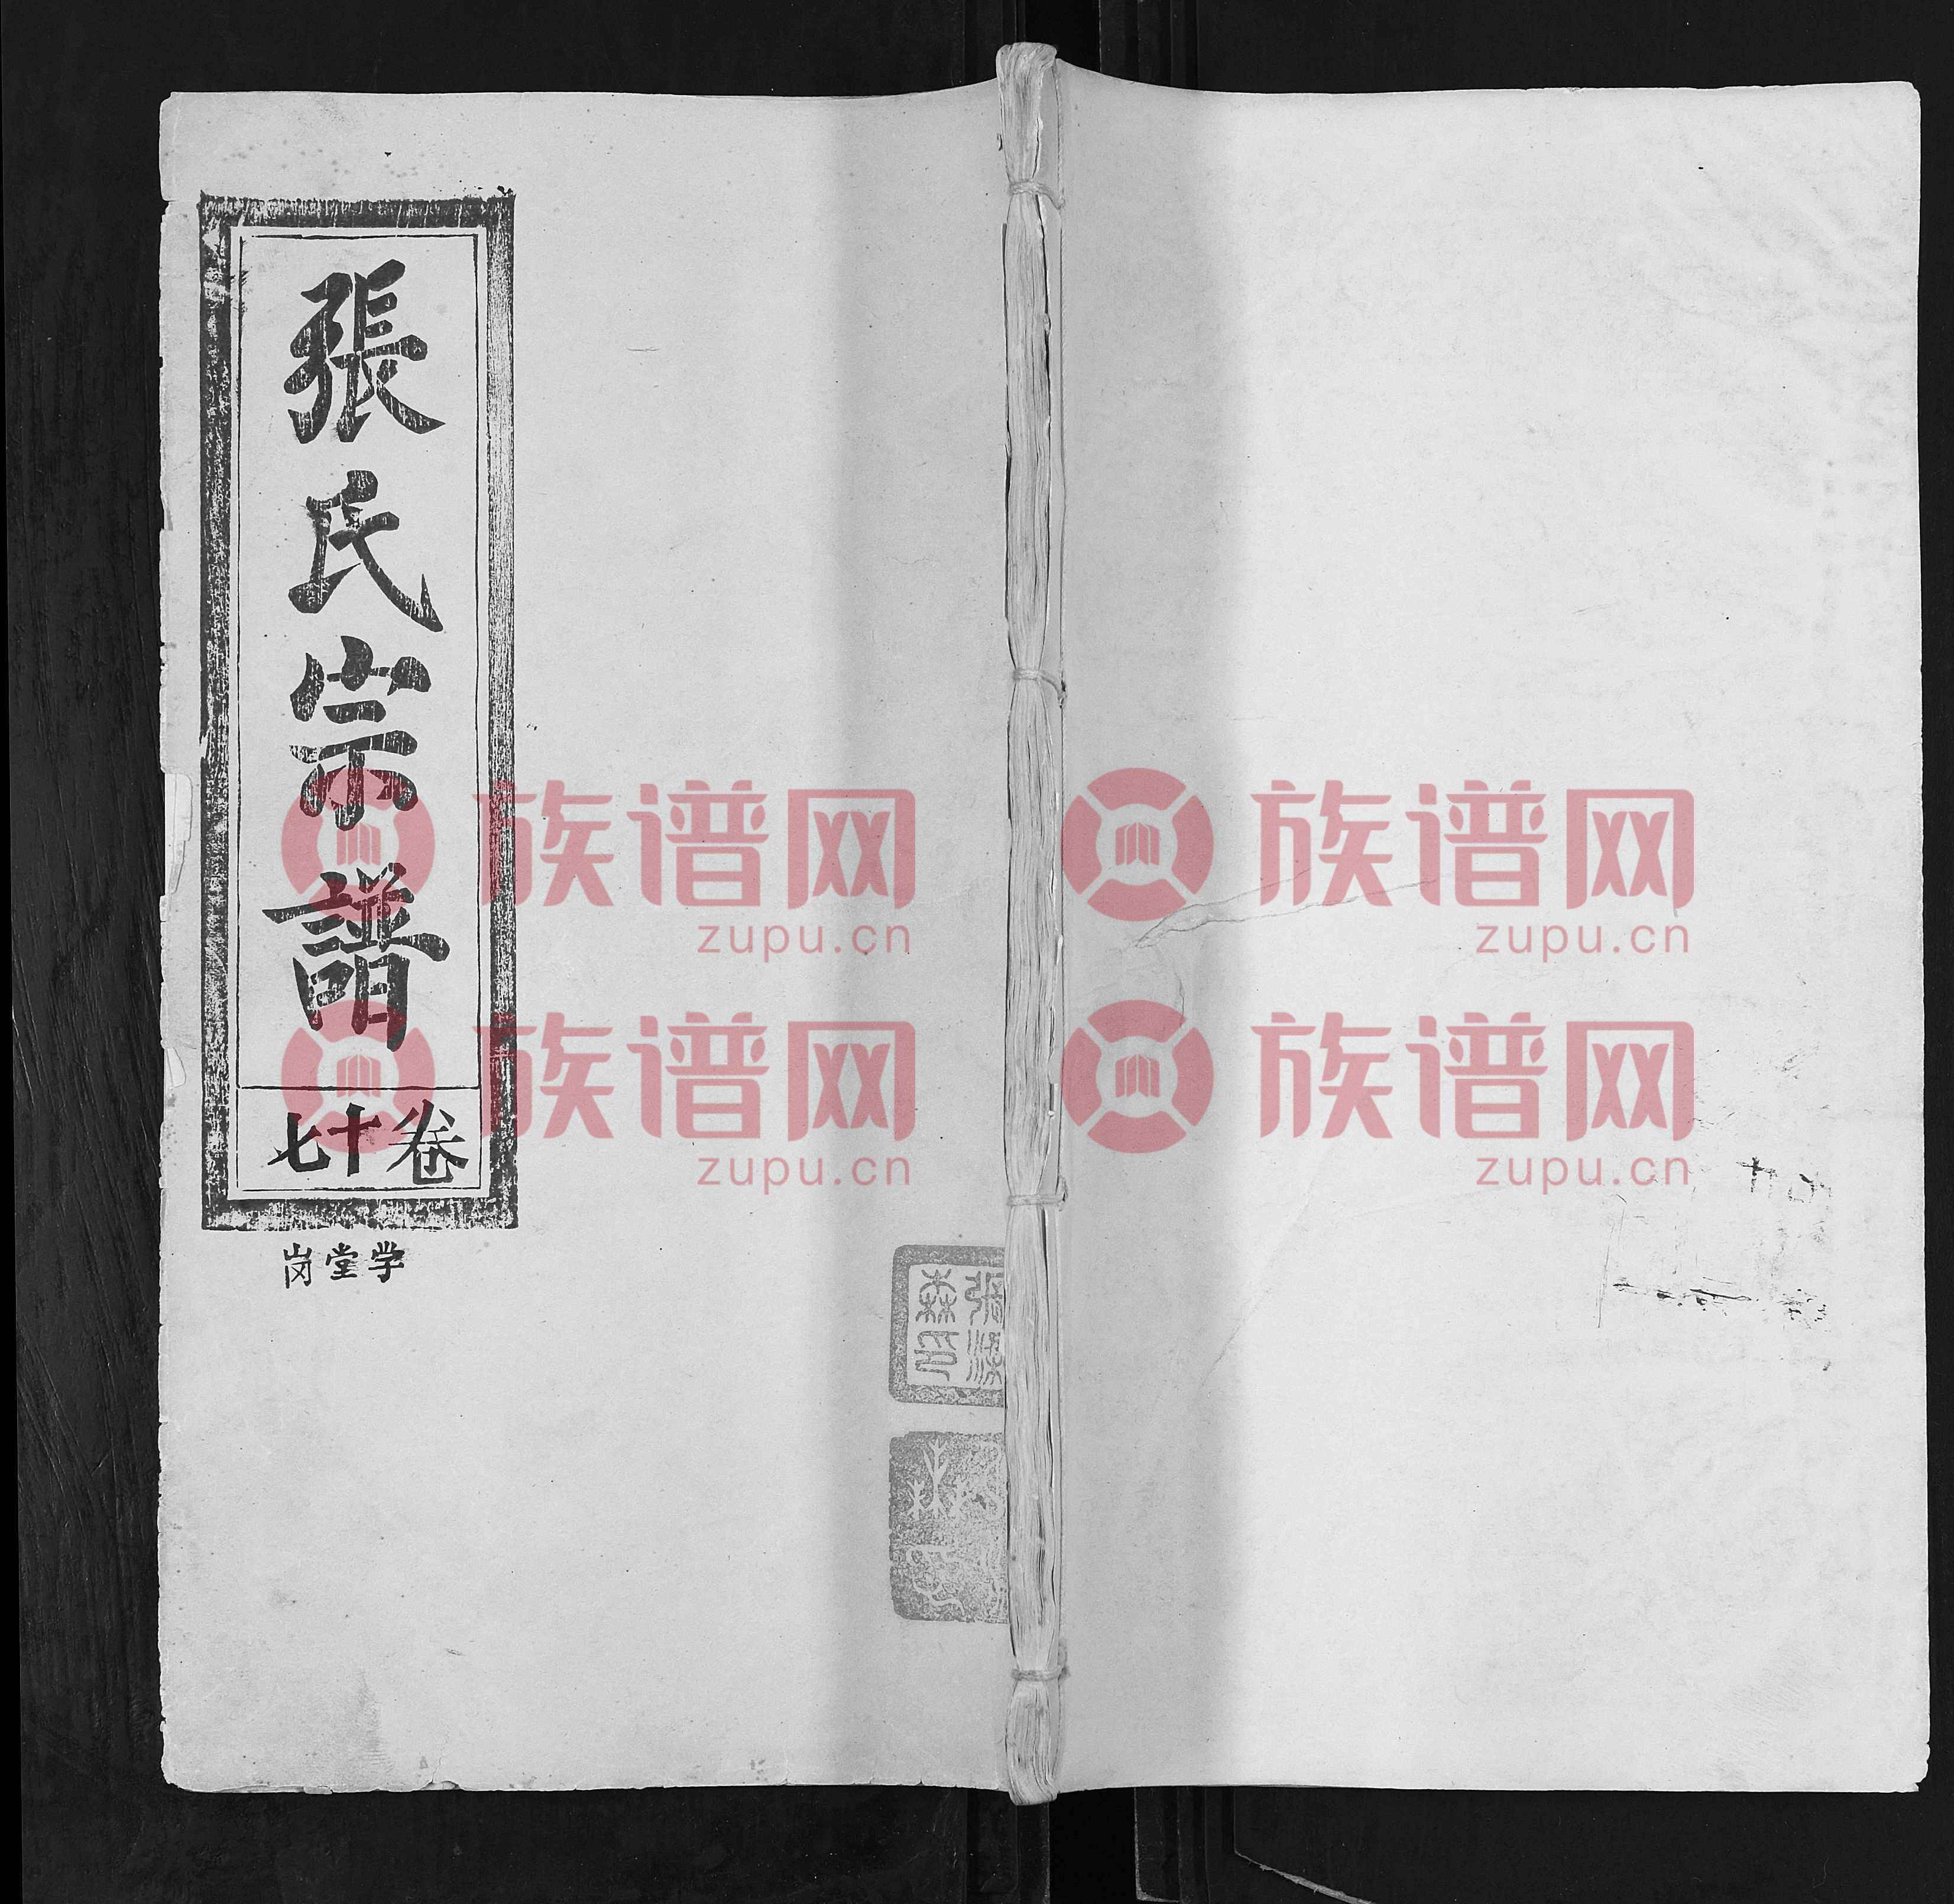 張氏宗譜
卷十七
学堂岗
族谱网
zupu.cn
族谱网
zupu.cn
族谱网
zupu.cn
族谱网
zupu.cn